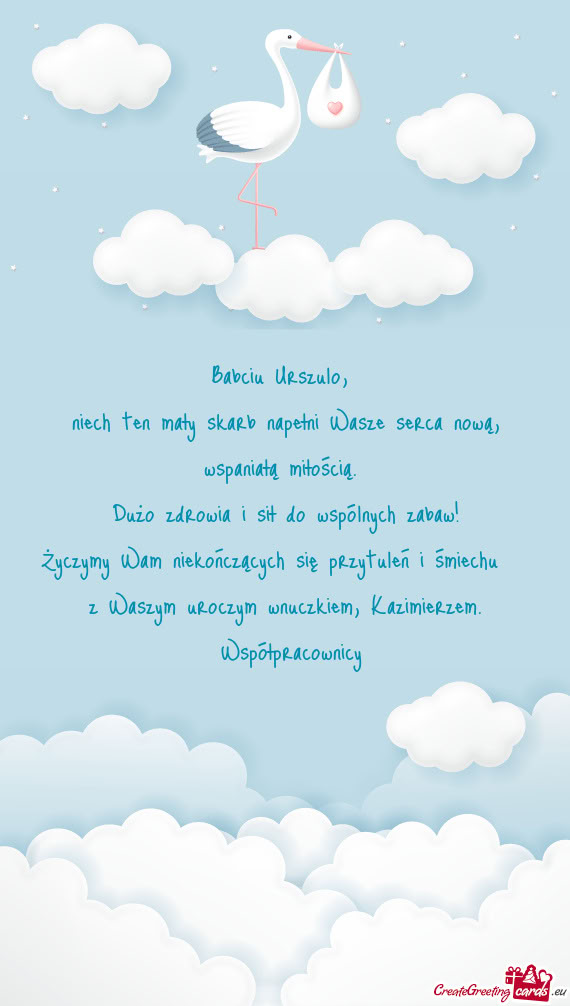 Babciu Urszulo,
niech ten mały skarb napełni Wasze serca nową,
wspaniałą miłością.
Dużo zdrowia i sił do wspólnych zabaw!
Życzymy Wam niekończących się przytuleń i śmiechu
z Waszym uroczym wnuczkiem, Kazimierzem.
Współpracownicy
CreateGreetingcards.eu